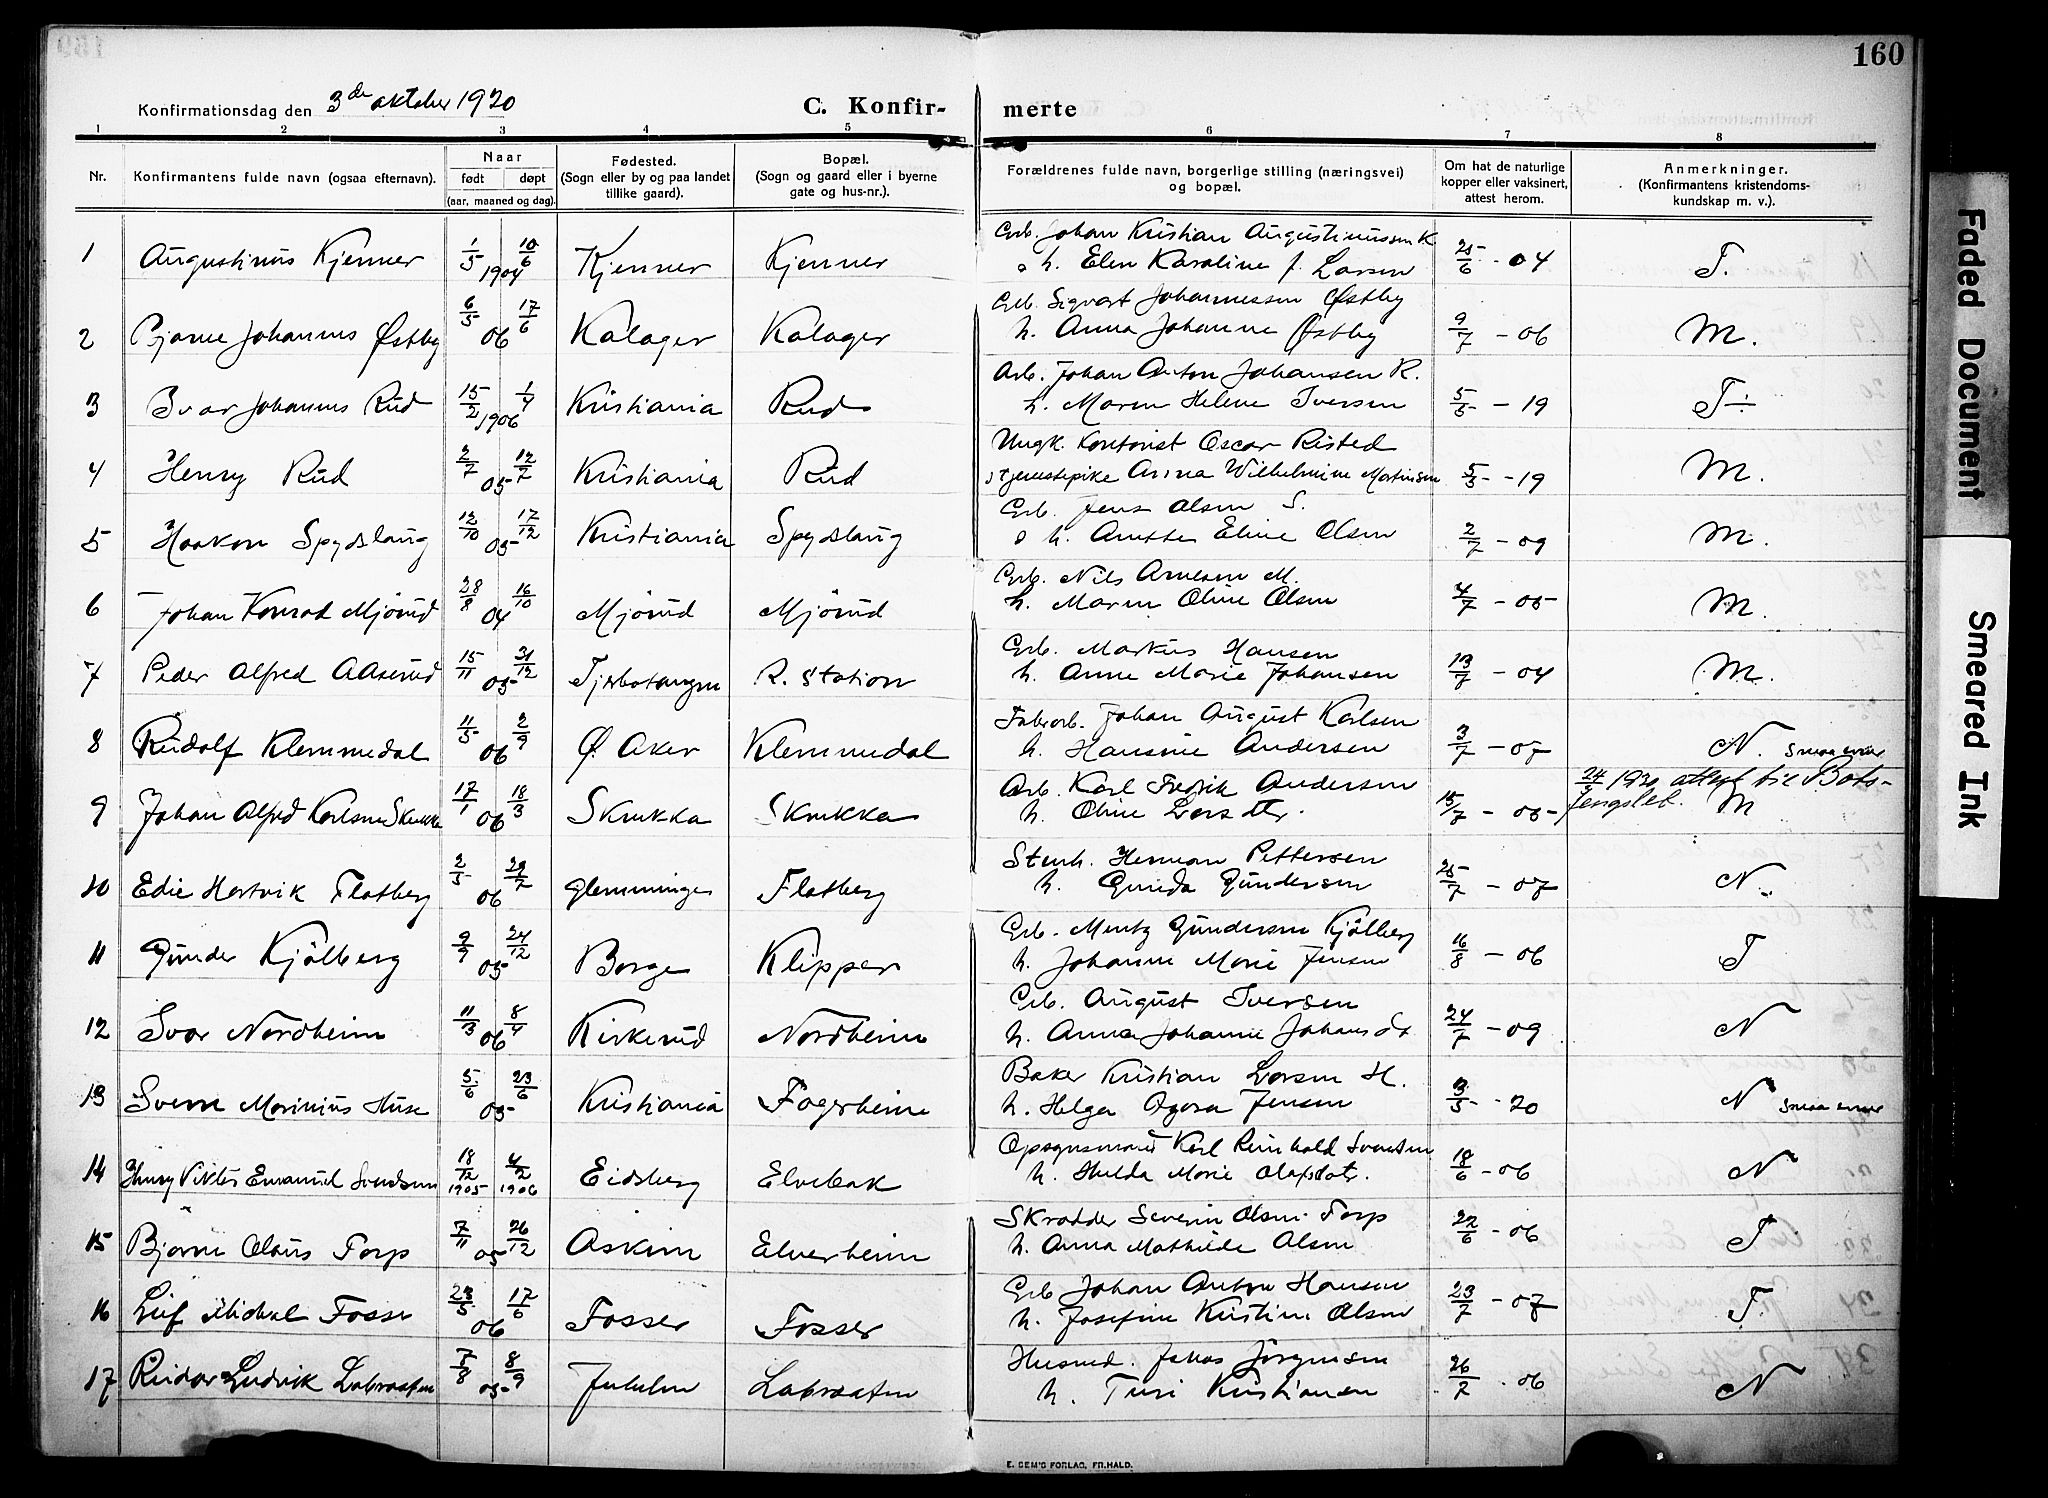 160
Konfirmationsdag den 3de oktober 1920
C. Konfir- merte
1 2 3 4 5 6 7 8
Nr.
Konfirmantens fulde navn (ogsaa efternavn).
Naar
født døpt
(aar, maaned og dag).
Fødested.
(Sogn eller by og paa landet
tillike gaard).
Bopæl.
(Sogn og gaard eller i byerne
gate og hus-nr.).
Forældrenes fulde navn, borgerlige stilling (næringsvei)
og bopæl.
Om hat de naturlige
kopper eller vaksinert,
attest herom.
Anmerkninger.
(Konfirmantens kristendoms-
kundskap m. v.).
1 Augustinus Kjenner 1/5 10/6 1904 Kjenner Kjenner
Johan Kristian Augustinussen K
o h. Elen Karoline f. Larsen 25/6 - 04 T.
2 Bjarne Johannes Østby 6/5 17/6 06 Kalager Kalager
Sigvart Johannessen Østby
h. Anna Johanne Østby 9/7 - 06 M.
3 Ivar Johannes Rud 15/2 1/4 1906 Kristiania Rud
Arb. Johan Anton Johansen R.
h. Maren Helene Iversen 5/5 - 19 T÷
4 Henry Rud 2/7 05 Kristiania Rud
Ungk. Kontorist Oscar Risted
Tjenestepike Anna Wilhelmine Martinsen 5/5 - 19 M.
5 Haakon Spydslaug 12/10 17/12 05 Kristiania Spydslaug
Jens Olsen S.
o h. Anette Eline Olsen 2/7 - 09 M.
6 Johan Konrad Mjörud 28/8 16/10 04 Mjörud Mjörud
Nils Arnesen M.
h. Maren Oline Olsen 4/7 - 05 M.
7 Peder Alfred Aaserud 15/11 31/12 03 R. Station
Markus Hansen
h. Anne Marie Johansen 13/7 - 04 M.
8 Rudolf Klemmedal 11/5 2/9 06 Ø. Aker Klemmedal
Fabarb. Johan August Karlsen
h. Hansine Andersen 3/7 - 07 N. smaa evner
9 Johan Alfred Karlsen Skukka 17/1 18/3 06 Skukka Skukka
Arb. Karl Fredrik Andersen
h. Oline Larsdtr. 15/7 - 05 24/5 1930 attest til Bots-
fengslet. M
10 Edie Hartvik Flatberg 2/5 06 Glemminge Flatberg
Stenh. Herman Pettersen
h. Gunda Gundersen 25/7 - 07 N.
11 Gunder Kjölberg 9/9 24/12 05 Borge Klipper
Mentz Gundersen Kjölberg
h. Johanne Marie Jensen 16/8 - 06 T
12 Ivar Nordheim 11/3 8/4 06 Kirkerud Nordheim
August Iversen
h. Anna Johanne Johansdt 24/7 - 09 N
13 Sverre Marinius Huse 5/6 23/6 05 Kristiania Fagerheim
Baker Kristian Larsen H.
h. Helga Agora Jensen 3/5 - 20 N smaa evner
14 Henry Viktor Emanuel Svendsen 18/12 1905 4/2 1906 Eidsberg Elvebak
Opsynsmand Karl Reinhold Svendsen
h. Hulda Marie Olafsdatr. 18/6 - 06 N
15 Bjarne Olaus Torp 7/11 26/12 05 Askim Elverheim
Skrædder Severin Olsen Torp
h. Anna Mathilde Olsen 22/6 - 06 T
16 Leif Michal Fosser 23/5 17/6 06 Fosser Fosser
Johan Anton Hansen
h. Josefine Kristine Olsen 23/7 - 07 T.
17 Reidar Ludvik Labraaten 7/8 8/9 05 Labraaten
Husmd. Johas Jörgensen
h. Turi Kristiansen 26/7 - 06 N
E. SEM'S FORLAG, FR.HALD.
Faded Document
Smeared Ink